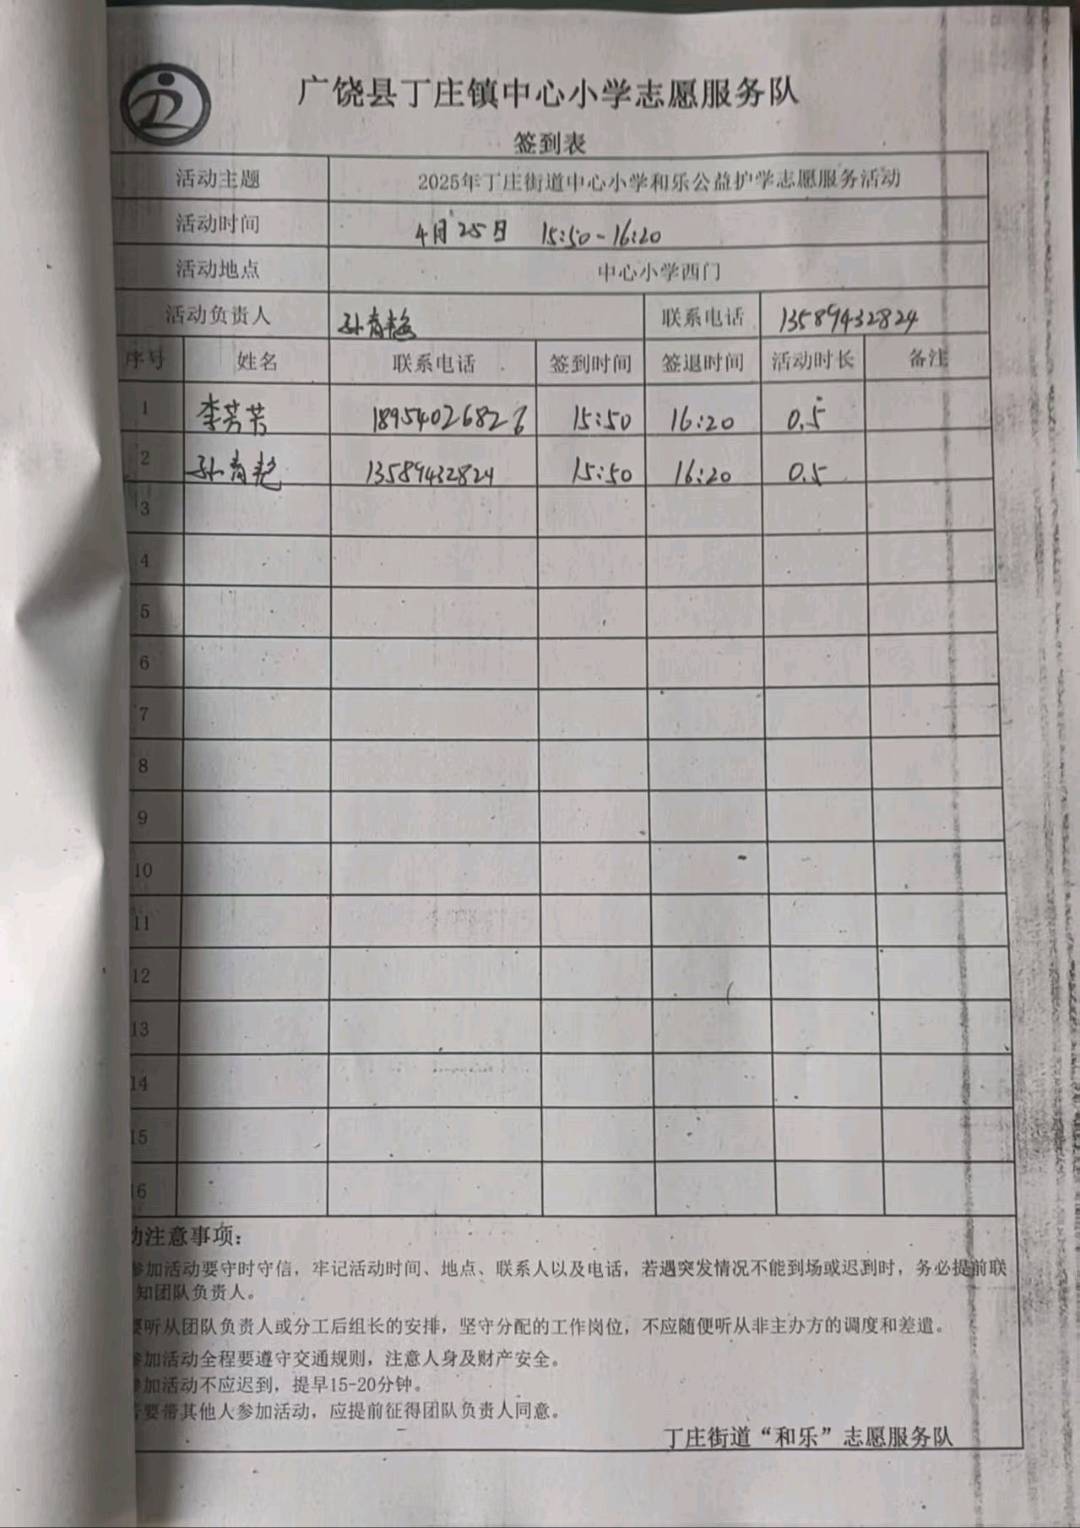 广饶县丁庄镇中心小学志愿服务队
签到表
活动主题 2025年丁庄街道中心小学和乐公益护学志愿服务活动
活动时间 4月25日 15:50-16:20
活动地点 中心小学西门
活动负责人 孙育艳 联系电话 13589432824
序号 姓名 联系电话 签到时间 签退时间 活动时长 备注
1 李芳芳 18954026826 15:50 16:20 0.5
2 孙育艳 13589432824 15:50 16:20 0.5
3
4
5
6
7
8
9
10
11
12
13
14
15
16
动注意事项:
参加活动要守时守信，牢记活动时间、地点、联系人以及电话，若遇突发情况不能到场或迟到时，务必提前联
知团队负责人。
要听从团队负责人或分工后组长的安排，坚守分配的工作岗位，不应随便听从非主办方的调度和差遣。
参加活动全程要遵守交通规则，注意人身及财产安全。
参加活动不应迟到，提早15-20分钟。
若要带其他人参加活动，应提前征得团队负责人同意。
丁庄街道“和乐”志愿服务队